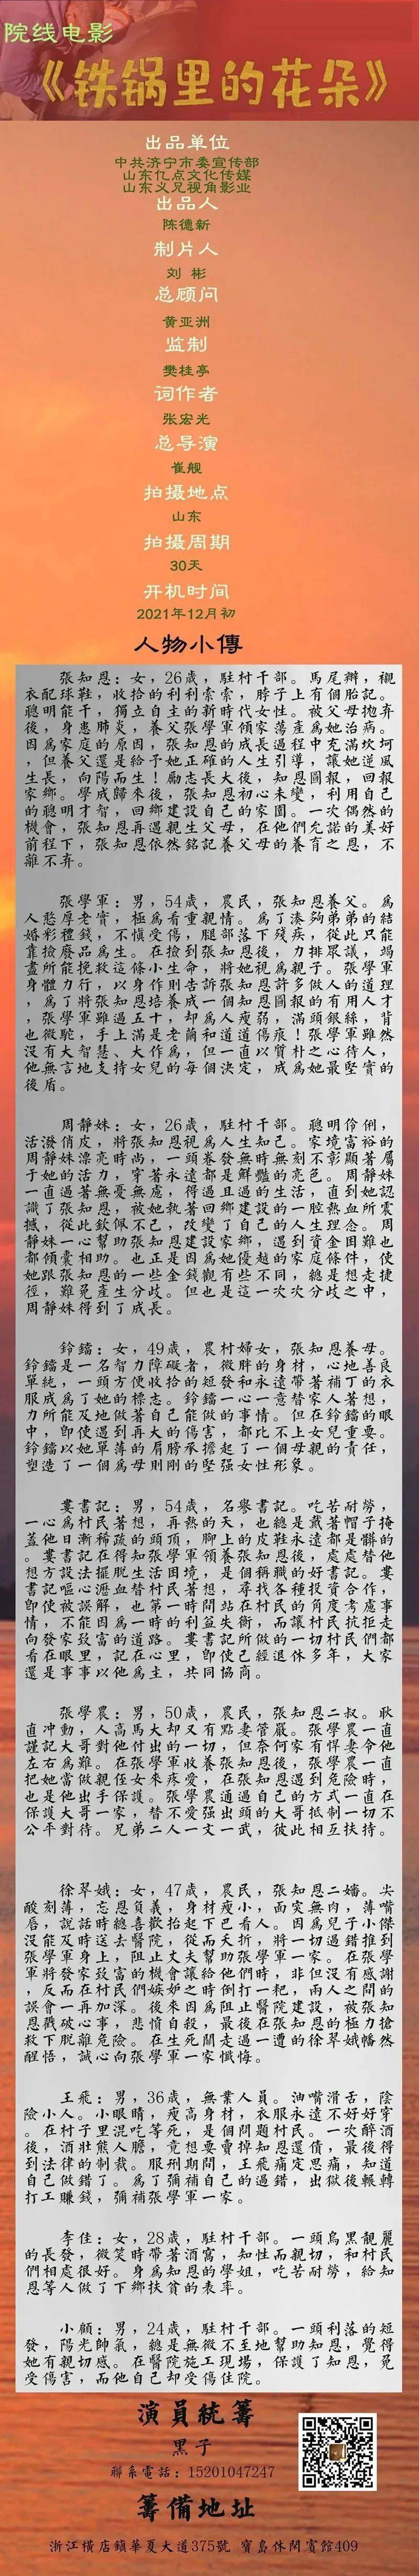 院线电影
《铁锅里的花朵》
出品单位
中共济宁市委宣传部
山东亿点文化传媒
山东义兄视角影业
出品人
陈德新
制片人
刘 彬
总顾问
黄亚洲
监制
樊桂亭
词作者
张宏光
总导演
崔舰
拍摄地点
山东
拍摄周期
30天
开机时间
2021年12月初
人物小傳
張知恩：女，26歲，駐村干部。馬尾辮，襯
衣配球鞋，收拾的利利索索，脖子上有個胎記。
聰明能干，獨立自主的新時代女性。被父母抛弃
後，身患肺炎，養父張學軍傾家蕩産爲她治病。
因爲家庭的原因，張知恩的成長過程中充滿坎坷
，但養父還是給予她正確的人生引導，讓她逆風
生長，向陽而生！勵志長大後，知恩圖報，回報
家鄉。學成歸來後，張知恩初心未變，利用自己
的聰明才智，回鄉建設自己的家園。一次偶然的
機會，張知恩再遇親生父母，在他們允諾的美好
前程下，張知恩依然銘記養父母的養育之恩，不
離不弃。
張學軍：男，54歲，農民，張知恩養父。爲
人憨厚老實，極爲看重親情。爲了湊夠弟弟的結
婚彩禮錢，不慎受傷，腿部落下殘疾，從此只能
靠撿廢品爲生。在撿到張知恩後，力排衆議，竭
盡所能挽救這條小生命，將她視爲親子。張學軍
身體力行，以身作則告訴張知恩許多做人的道理
，爲了將張知恩培養成一個知恩圖報的有用人才
，張學軍雖過五十，却爲人瘦弱，滿頭銀絲，背
也微駝，手上滿是老繭和道道傷痕！張學軍雖然
没有大智慧、大作爲，但一直以質朴之心待人，
他無言地支持女兒的每個决定，成爲她最堅實的
後盾。
周靜姝：女，26歲，駐村干部。聰明伶俐，
活潑俏皮，將張知恩視爲人生知己。家境富裕的
周靜姝漂亮時尚，一頭卷發無時無刻不彰顯著屬
于她的活力，穿著永遠都是鮮艷的亮色。周靜姝
一直過著無憂無慮，得過且過的生活，直到她認
識了張知恩，被她執著回鄉建設的一腔熱血所震
撼，從此欽佩不已，改變了自己的人生理念。周
靜姝一心幫助張知恩建設家鄉，遇到資金困難也
都傾囊相助。也正是因爲她優越的家庭條件，使
她跟張知恩的一些金錢觀有些不同，總是想走捷
徑，難免産生分歧。但也是這一次次分歧之中，
周靜姝得到了成長。
鈴鐺：女，49歲，農村婦女，張知恩養母。
鈴鐺是一名智力障礙者，微胖的身材，心地善良
單純，一頭方便收拾的短發和永遠帶著補丁的衣
服成爲了她的標志。鈴鐺一心一意替家人著想，
力所能及地做著自己能做的事情。但在鈴鐺的眼
中，即使遇到再大的傷害，都比不上女兒重要。
鈴鐺以她單薄的肩膀承擔起了一個母親的責任，
塑造了一個爲母則剛的堅强女性形象。
婁書記：男，54歲，名譽書記。吃苦耐勞，
一心爲村民著想，再熱的天，也總是戴著帽子掩
蓋他日漸稀疏的頭頂，脚上的皮鞋永遠都是髒的
。婁書記在得知張學軍領養張知恩後，處處替他
想方設法擺脱生活困境，是個稱職的好書記。婁
書記嘔心瀝血替村民著想，尋找各種投資合作，
即使被誤解，也第一時間站在村民的角度考慮事
情，不能因爲一時的利益失衡，而讓村民抗拒走
向發家致富的道路。婁書記所做的一切村民們都
看在眼里，記在心里，即使已經退休多年，大家
還是事事以他爲主，共同協商。
張學農：男，50歲，農民，張知恩二叔。耿
直冲動，人高馬大却又有點妻管嚴。張學農一直
謹記大哥對他付出的一切，但奈何家有悍妻令他
左右爲難。在張學軍收養張知恩後，張學農一直
把她當做親侄女來疼愛，在張知恩遇到危險時，
也是他出手保護。張學農通過自己的方式一直在
保護大哥一家，替不愛强出頭的大哥抵制一切不
公平對待。兄弟二人一文一武，彼此相互扶持。
徐翠娥：女，47歲，農民，張知恩二嬸。尖
酸刻薄，忘恩負義，身材瘦小，面突無肉，薄嘴
唇，說話時總喜歡抬起下巴看人。因爲兒子小傑
没能及時送去醫院，從而夭折，將一切過錯推到
張學軍身上，阻止丈夫幫助張學軍一家。在張學
軍將發家致富的機會讓給他們時，非但没有感謝
，反而在村民們嫉妒之時倒打一耙，兩人之間的
誤會一再加深。後來因爲阻止醫院建設，被張知
恩戳破心事，悲憤自殺，最後在張知恩的極力搶
救下脱離危險。在生死關走過一遭的徐翠娥幡然
醒悟，誠心向張學軍一家懺悔。
王飛：男，36歲，無業人員。油嘴滑舌，陰
險小人。小眼睛，瘦高身材，衣服永遠不好好穿
。在村子里混吃等死，是個問題村民。一次醉酒
後，酒壯熊人膽，竟想要賣掉知恩還債，最後得
到法律的制裁。服刑期間，王飛痛定思痛，知道
自己做錯了。爲了彌補自己的過錯，出獄後輾轉
打工賺錢，彌補張學軍一家。
李佳：女，28歲，駐村干部。一頭烏黑靚麗
的長發，微笑時帶著酒窩，知性而親切，和村民
們相處很好。身爲知恩的學姐，吃苦耐勞，給知
恩等人做了下鄉扶貧的表率。
小顧：男，24歲，駐村干部。一頭利落的短
發，陽光帥氣，總是無微不至地幫助知恩，覺得
她有親切感。在醫院施工現場，保護了知恩，免
受傷害，而他自己却受傷住院。
演員統籌
黑子
聯系電話：15201047247
籌備地址
浙江橫店鎮華夏大道375號 寶島休閑賓館409